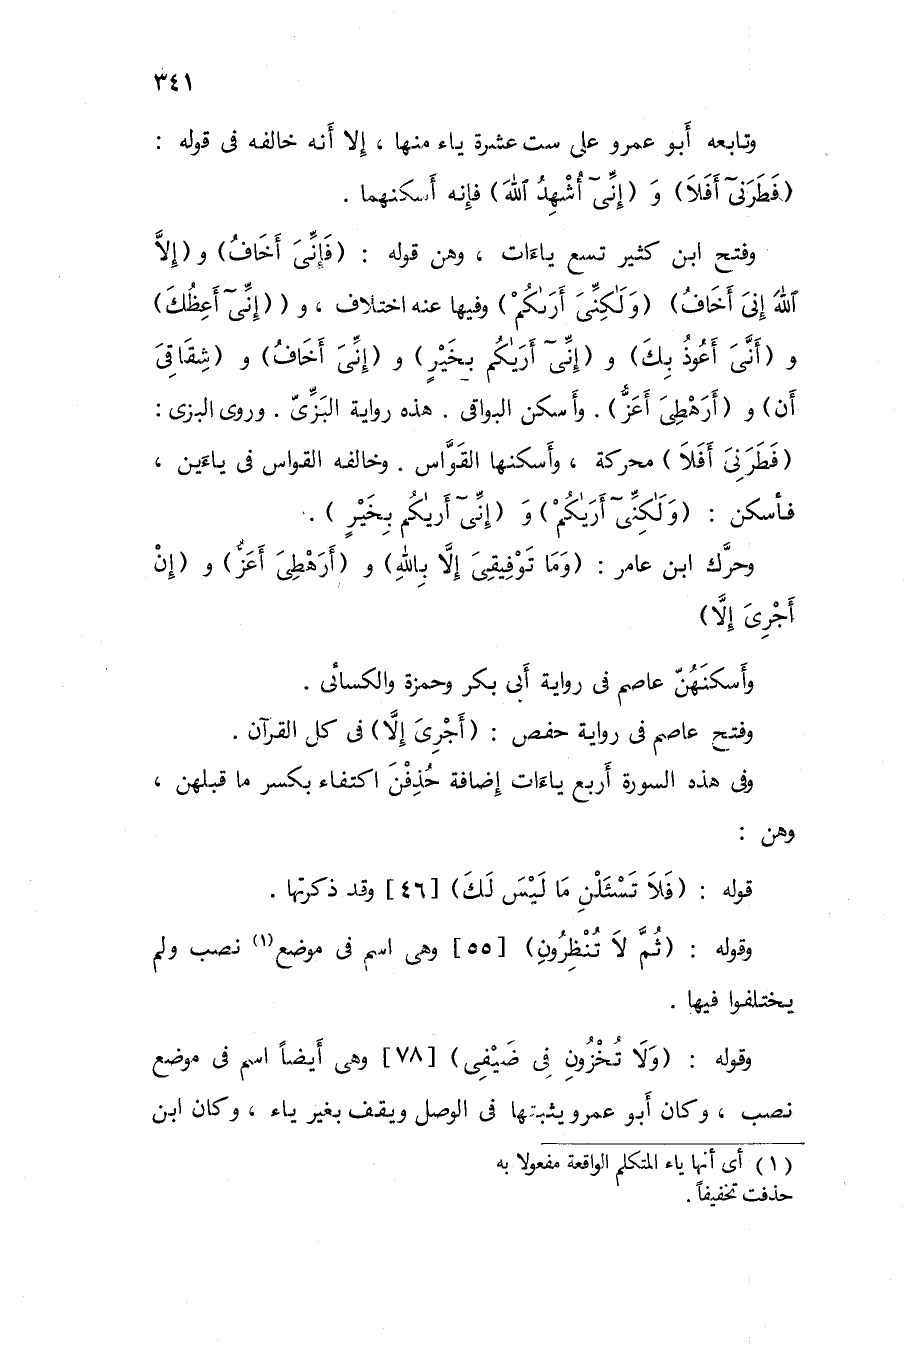 ٣٤١
وتابعه أبو عمرو على ست عشرة ياء منها ، إلا أنه خالفه فى قوله :
(فَطَرَنِىٓ أَفَلاَ) وَ (إِنِّىٓ أُشْهِدُ ٱللهَ) فإنه أسكنهما .
وفتح ابن كثير تسع ياءات ، وهن قوله : (فَإِنِّىَ أَخَافُ) و (إِلاَّ
ٱللهَ إِنىَ أَخَافُ) (وَلَـٰكِنِّىَ أَرَىٰكُمْ) وفيها عنه اختلاف ، و ( (إِنِّىٓ أَعِظُكَ)
و (أَنَّىَ أَعُوذُ بِكَ) و (إِنِّىٓ أَرَىٰكُم بِخَيْرٍ) و (إِنِّىَ أَخَافُ) و (شِقَاقِىَ
أَن) و (أَرَهْطِىَ أَعَزُّ) . وأسكن البواقى . هذه رواية البَزِّىّ . وروى البزى :
(فَطَرَنِىَ أَفَلاَ) محركة ، وأسكنها القَوَّاس . وخالفه القواس فى ياءين ،
فأسكن : (وَلَـٰكِنِّىٓ أَرَىٰكُمْ) وَ (إِنِّىٓ أَرىٰكُم بِخَيْرٍ ) .
وحرَّك ابن عامر : (وَمَا تَوْفِيقِىَ إِلَّا بِاللهِ) و (أَرَهْطِىَ أَعَزُّ) و (إِنْ
أَجْرِىَ إِلَّا)
وأَسكنَهُنّ عاصم فى رواية أَبى بكر وحمزة والكسائى .
وفتح عاصم فى رواية حفص : (أَجْرِىَ إِلَّا) فى كل القرآن .
وفى هذه السورة أربع ياءات إضافة حُذِفْنَ اكتفاء بكسر ما قبلهن ،
وهن :
قوله : (فَلاَ تَسْئَلْنِ مَا لَيْسَ لَكَ) [٤٦] وقد ذكرتها .
وقوله : (ثُمَّ لاَ تُنْظِرُونِ) [٥٥] وهى اسم فى موضع(١) نصب ولم
يختلفوا فيها .
وقوله : (وَلَا تُخْزُونِ فِى ضَيْفِى) [٧٨] وهى أَيضاً اسم فى موضع
نصب ، وكان أبو عمرو يثبتها فى الوصل ويقف بغير ياء ، وكان ابن
(١) أى أنها ياء المتكلم الواقعة مفعولا به
حذفت تخفيفاً .